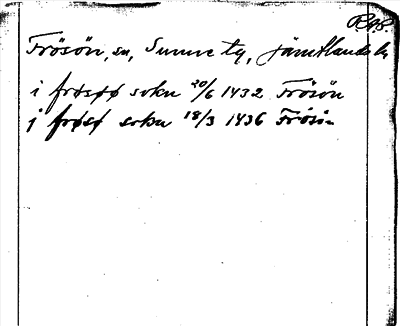 R98.
Frösön, sn, Sunne tg, Jämtlands l.
i frøsøø sokn 20/6 1432 Frösön
j frøsø sokn 18/3 1436 Frösön